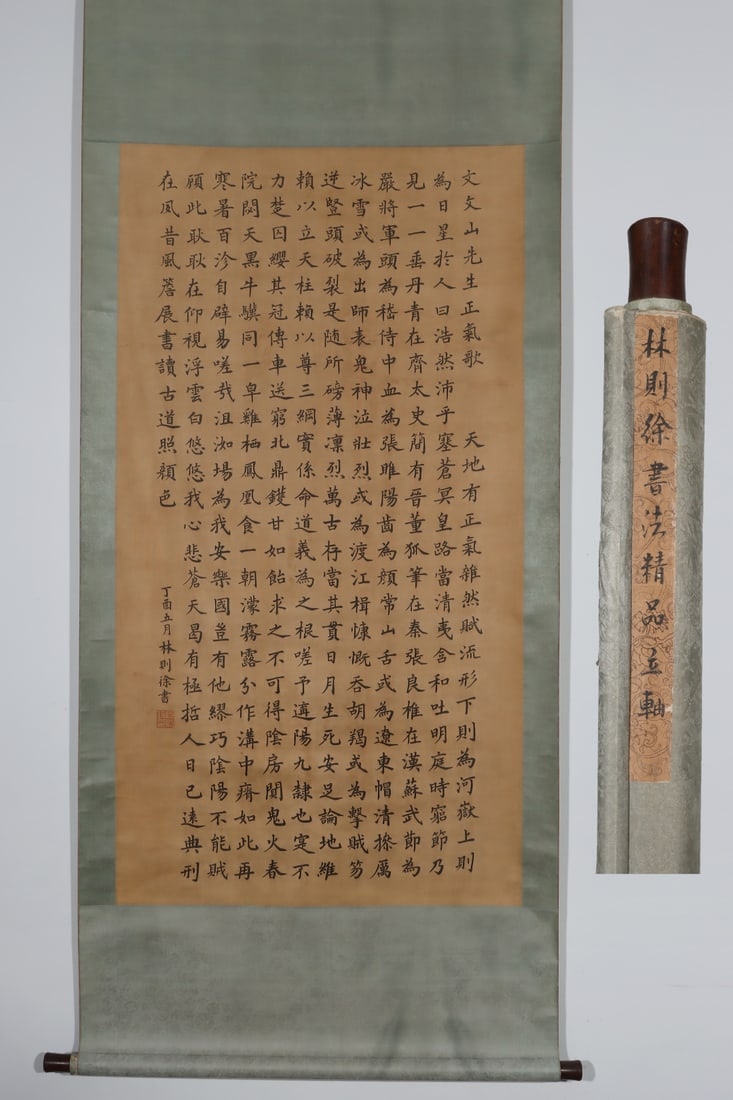 文文山先生正氣歌　天地有正氣雜然賦流形下則為河嶽上則
為日星於人曰浩然沛乎塞蒼冥皇路當清夷含和吐明庭時窮節乃
見一一垂丹青在齊太史簡有晉董狐筆在秦張良椎在漢蘇武節為
嚴將軍頭為嵇侍中血為張睢陽齒為顏常山舌或為遼東帽清操厲
冰雪或為出師表鬼神泣壯烈或為渡江楫慷慨吞胡羯或為擊賊笏
逆豎頭破裂是隨所磅薄凜烈萬古存當其貫日月生死安足論地維
賴以立天柱賴以尊三綱實係命道義為之根嗟予遘陽九隸也寔不
力楚囚纓其冠傳車送窮北鼎鑊甘如飴求之不可得陰房闃鬼火春
院閟天黑牛驥同一皁雞栖鳳凰食一朝濛霧露分作溝中瘠如此再
寒暑百沴自辟易嗟哉沮洳場為我安樂國豈有他繆巧陰陽不能賊
顧此耿耿在仰視浮雲白悠悠我心悲蒼天曷有極哲人日已遠典刑
在夙昔風簷展書讀古道照顏色
丁酉五月林則徐書
林則徐書法精品立軸